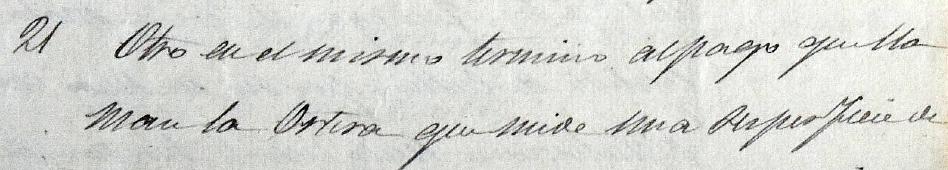 21 Otro en el mismo termino al pago que lla
man la que mide una superficie de